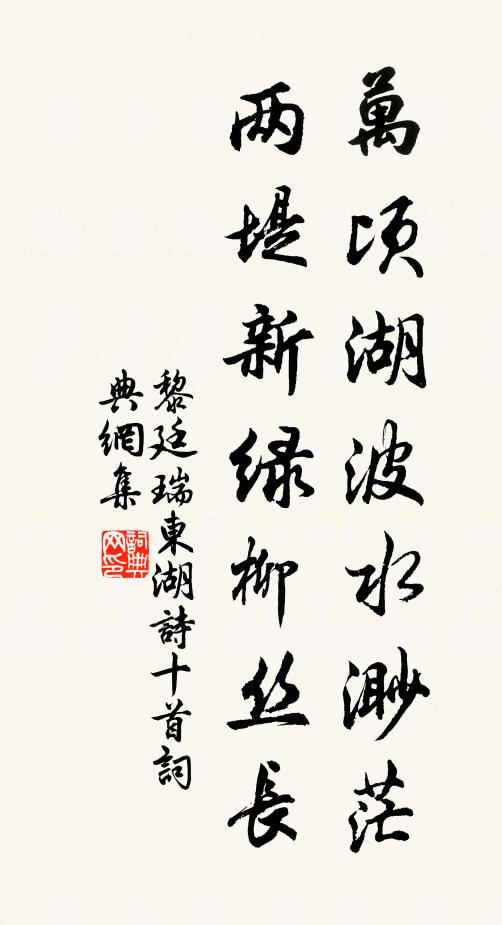 萬頃湖波水渺茫
两堤新绿柳丝長
黎廷瑞東湖詩十首詞
典網集
詞典
网印